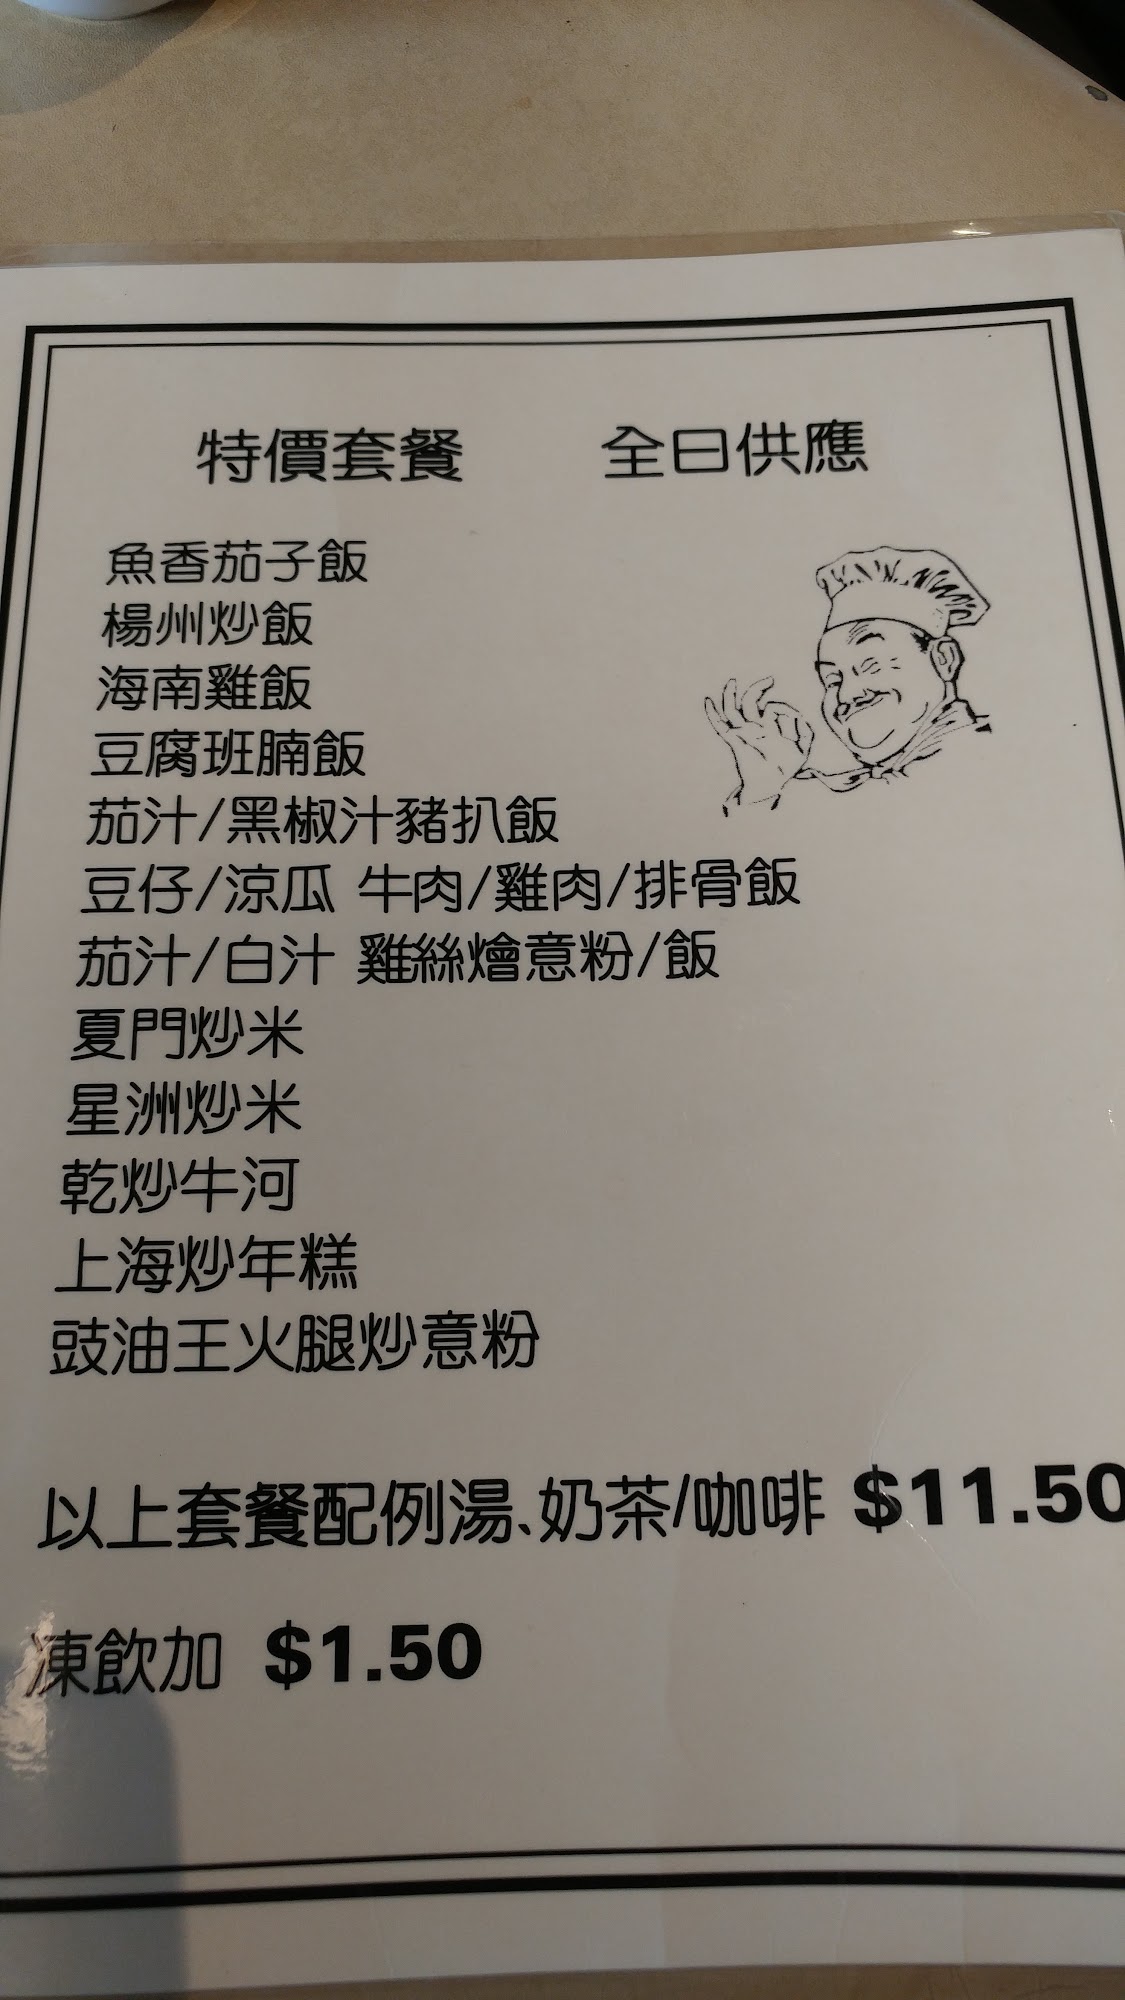 特價套餐 全日供應
魚香茄子飯
楊州炒飯
海南雞飯
豆腐班腩飯
茄汁/黑椒汁豬扒飯
豆仔/涼瓜 牛肉/雞肉/排骨飯
茄汁/白汁 雞絲燴意粉/飯
夏門炒米
星洲炒米
乾炒牛河
上海炒年糕
豉油王火腿炒意粉
以上套餐配例湯、奶茶/咖啡 $11.50
凍飲加 $1.50